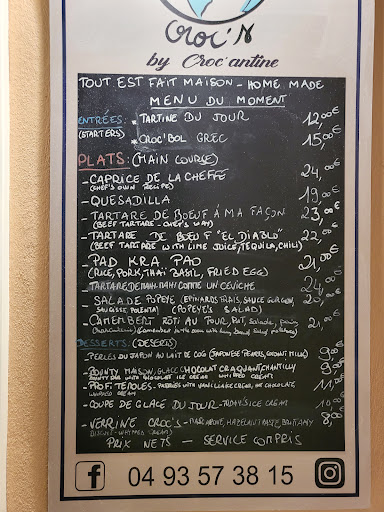 Croc'N
by Croc'antine
TOUT EST FAIT MAISON - HOME MADE
MENU DU MOMENT
ENTRÉES: * TARTINE DU JOUR 12,00€
(STARTERS) * CROC'BOL GREC 15,00€
PLATS: (MAIN COURSE)
- CAPRICE DE LA CHEFFE 24,00€
(CHEF'S OWN RECIPE)
- QUESADILLA 19,00€
- TARTARE DE BOEUF À MA FAÇON 23,00€
(BEEF TARTARE - CHEF'S WAY)
- TARTARE DE BOEUF "EL DIABLO" 22,00€
(BEEF TARTARE WITH LIME JUICE, TEQUILA, CHILI)
- PAD KRA PAO 21,00€
(RICE, PORK, THAI BASIL, FRIED EGG)
- TARTARE DE MAHI-MAHI COMME UN CEVICHE 24,00€
- SALADE POPEYE (EPINARDS FRAIS, SAUCE GORGON, 20,00€
SAUCISSE POLENTA) (POPEYE'S SALAD)
- CAMEMBERT RÔTI AU FOUR, PDT, Salade, pain 21,00€
DESSERTS: (DESERTS)
- PERLES DU JAPON AU LAIT DE COCO (JAPONESE PEARLS, COCONUT MILK) 9,00€
- BOUNTY MAISON, GLACE CHOCOLAT CRAQUANT, CHANTILLY 9,00€
BOUNTY BAR WITH CHOCOLAT ICE CREAM WHIPPED CREAM
- PROFITEROLES - PASTRIES WITH VANILLA ICE CREAM, HOT CHOCOLATE 11,00€
WHIPPED CREAM
- COUPE DE GLACE DU JOUR - TODAY'S ICE CREAM
- VERRINE CROC'S - MASCARPONE, HAZELNUT PASTE, BRITTANY 8,00€
BISCUIT - WHIPPED CREAM)
PRIX NETS - SERVICE COMPRIS
f 04 93 57 38 15